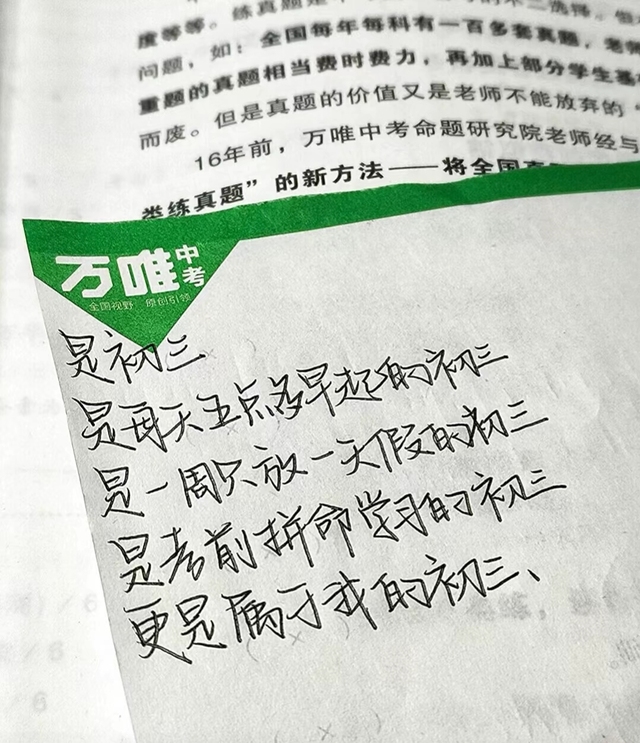 度等等。练真题是
不二选择。但
问题，如：全国每年每科有一百多套真题，老师
重题的真题相当费时费力，再加上部分学生基
而废。但是真题的价值又是老师不能放弃的
16年前，万唯中考命题研究院老师经与
类练真题”的新方法——将全国真
万唯中考
全国视野 原创引领
是初三
是每天五点多早起的初三
是一周只放一天假的初三
是考前拼命学习的初三
更是属于我的初三、
/ 6
/ 6
/ 6